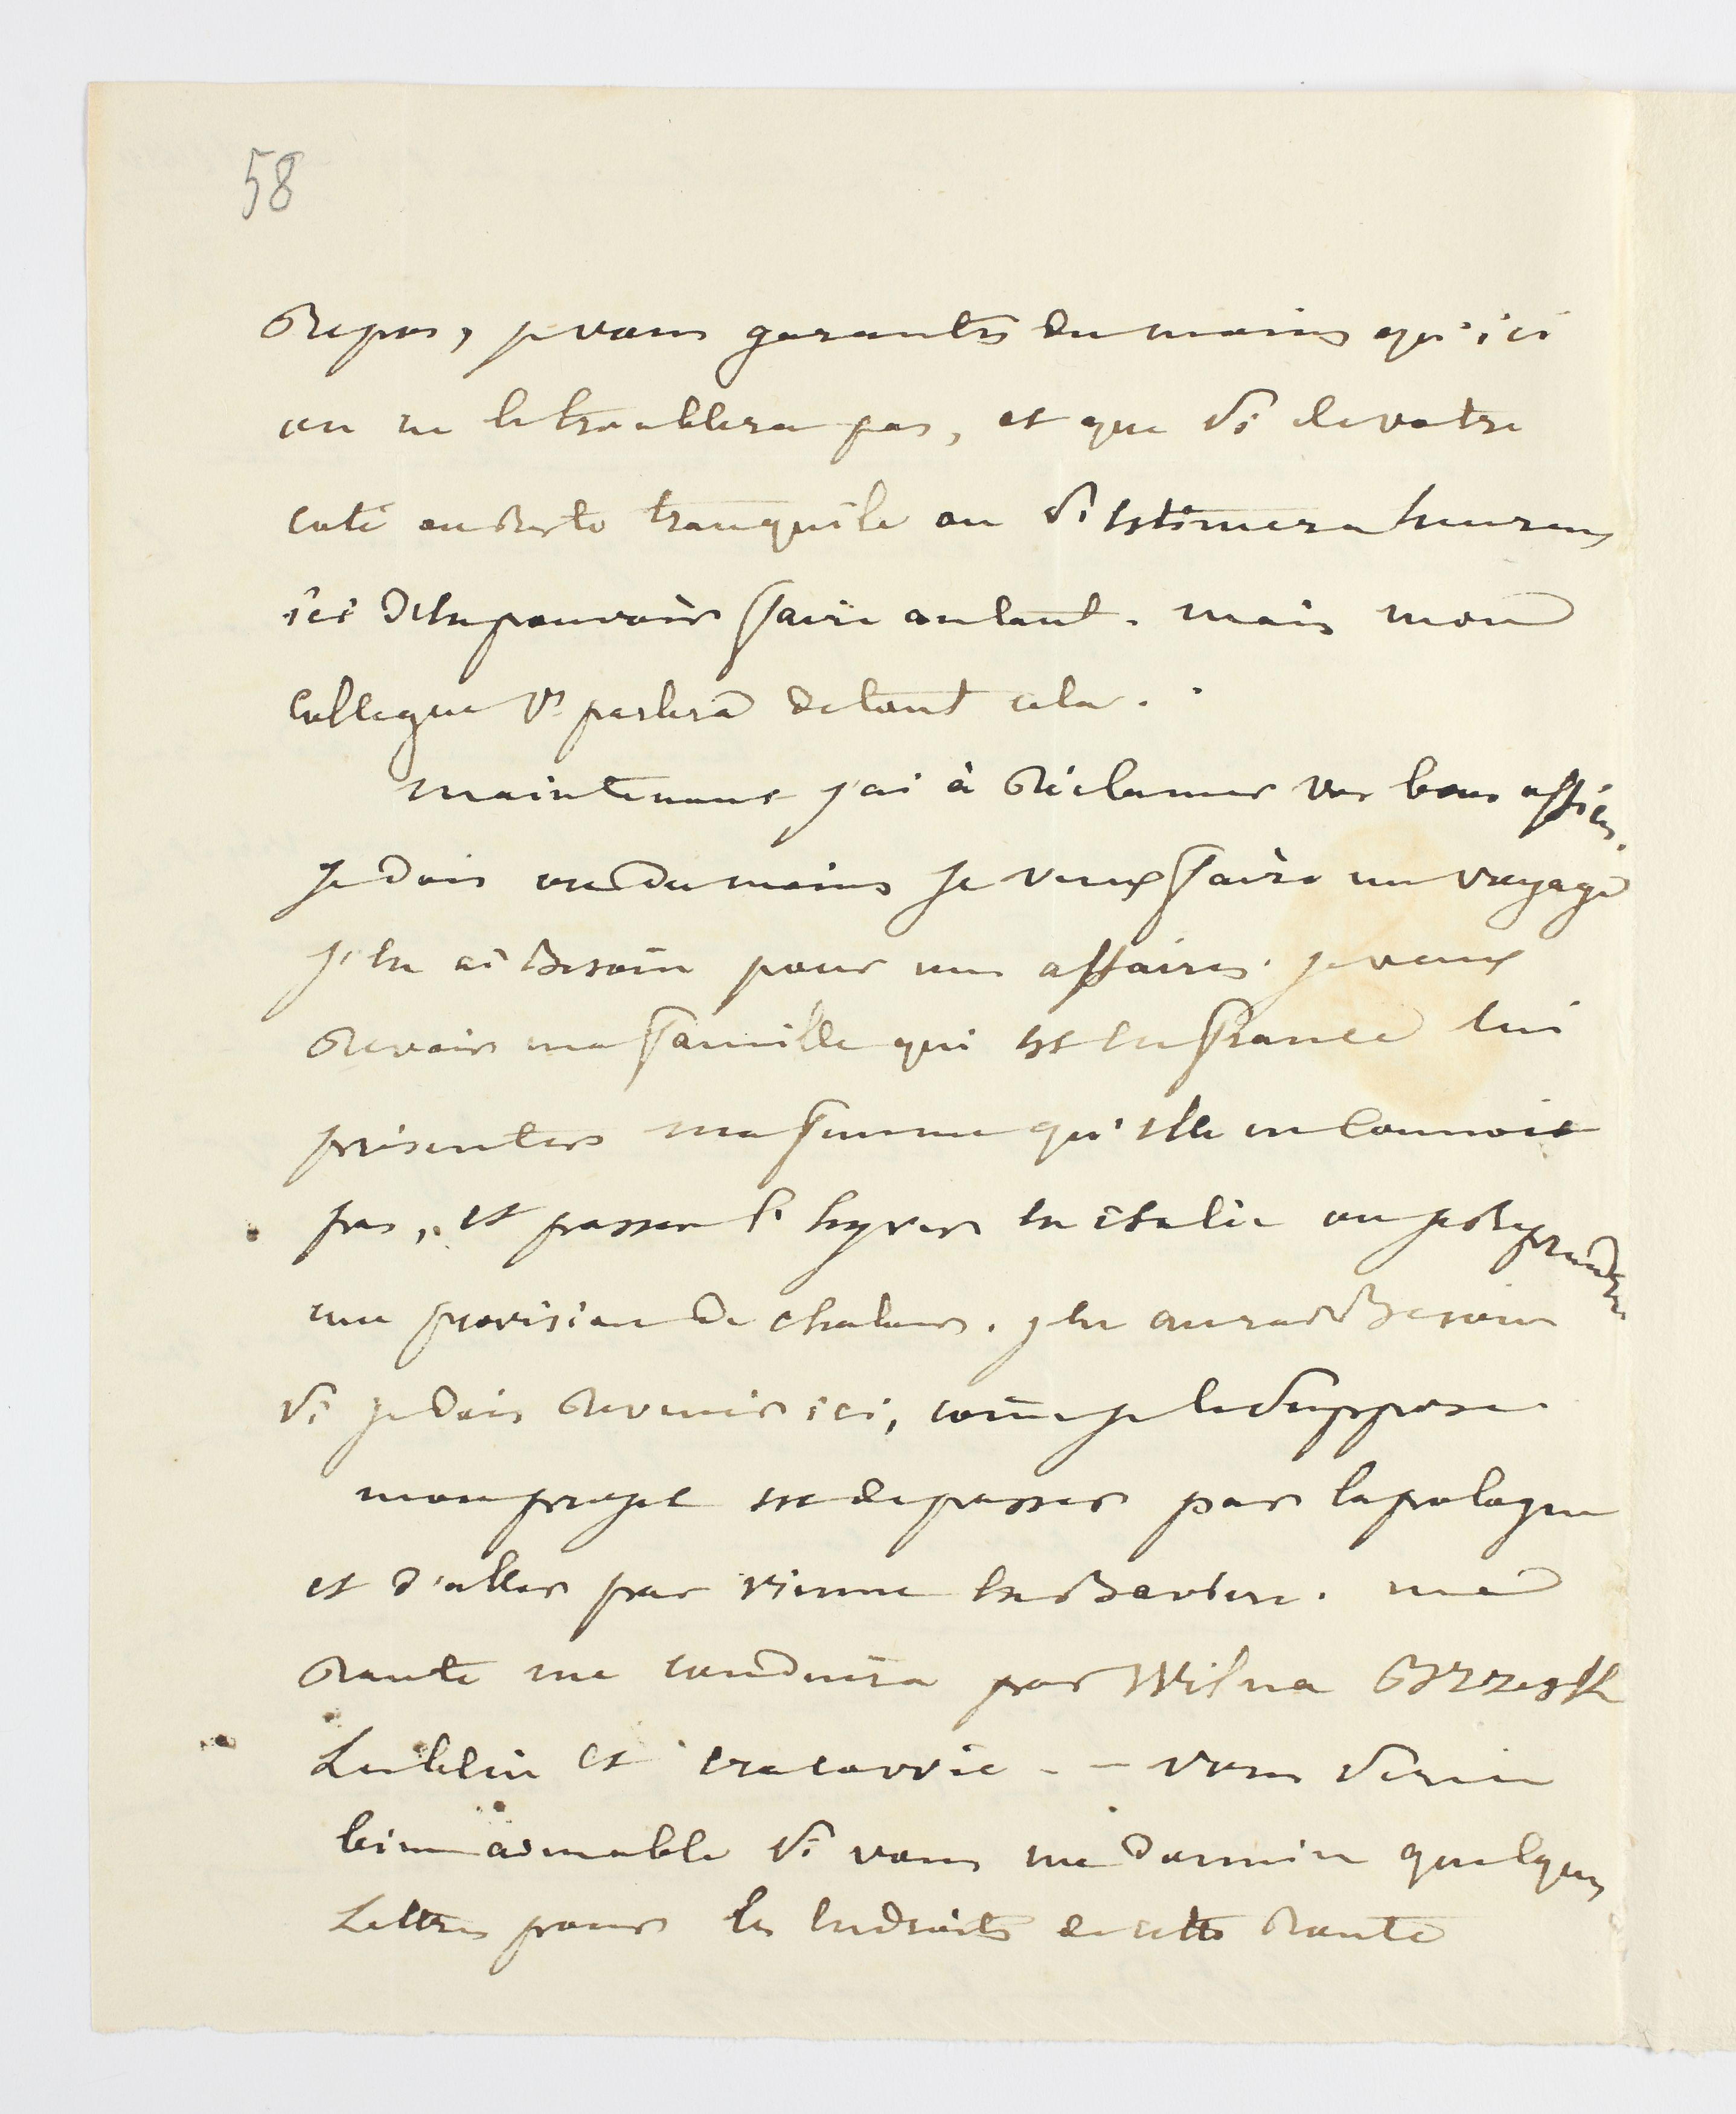 58
repos, je vous garantis du moins qu'ici
on ne le troublera pas, et que si de votre
coté on reste tranquile on s'estimera heureux
ici d'en pouvoir faire autant. mais mon
collegue vs parlera de tout cela.
maintenant j'ai à réclamer vos bons offices.
je dois ou du moins je veux faire un voyage
j'en ai besoin pour mes affaires. je veux
revoir ma famille qui est en france lui
présenter ma femme qu'elle ne connoit
pas, et passer l'hyver en italie ou je reprendrai
une provision de chaleur. j'en aurai besoin
si je dois revenir ici, come je le suppose.
mon projet est de passer par la pologne
et d'aller par vienne en Baviere. ma
route me conduira par Wilna Brzesk
Lublin et cracovie - - vous seriez
bien aimable si vous me donniez quelques
Lettres pour les endroits de cette route